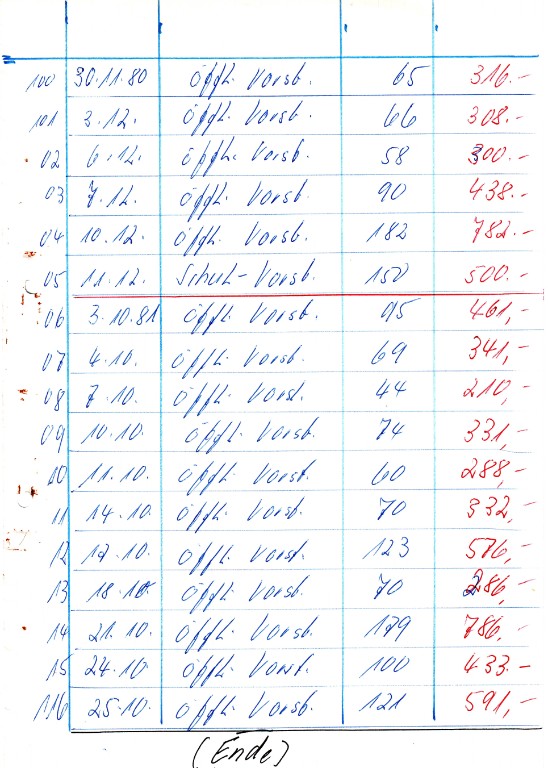 100 30.11.80 öfftl. Vorst. 65 316.-
101 3.12. öfftl. Vorst. 66 308.-
02 6.12. öfftl. Vorst. 58 300.-
03 7.12. öfftl. Vorst. 90 438.-
04 10.12. öfftl. Vorst. 182 782.-
05 11.12. Schul-Vorst. 150 500.-
06 3.10.81 öfftl. Vorst. 95 461,-
07 4.10. öfftl. Vorst. 69 341,-
08 7.10. öfftl. Vorst. 44 210,-
09 10.10. öfftl. Vorst. 74 331,-
10 11.10. öfftl. Vorst. 60 288,-
11 14.10. öfftl. Vorst. 70 332,-
12 17.10. öfftl. Vorst. 123 576,-
13 18.10. öfftl. Vorst. 70 286,-
14 21.10. öfftl. Vorst. 179 786,-
15 24.10. öfftl. Vorst. 100 433.-
116 25.10. öfftl. Vorst. 121 591,-
(Ende)